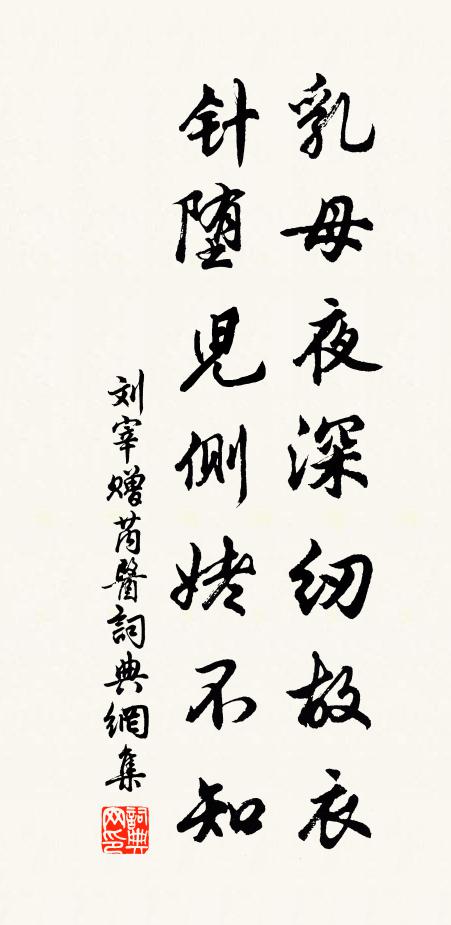 乳母夜深纫故衣
针堕儿侧姥不知
刘宰赠芮医詞典網集
詞典网印